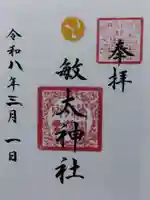 奉拝
敏太神社
令和八年三月一日